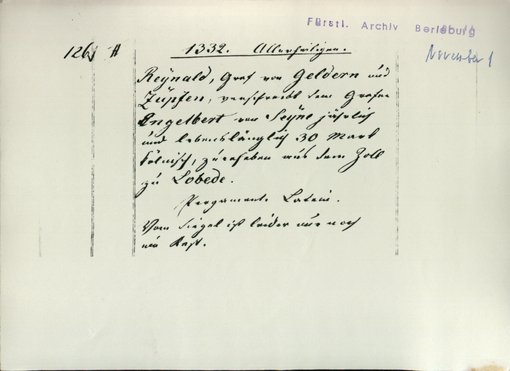 Fürstl. Archiv Berleburg
November 1
126 A
1332. Allerheiligen.
Reÿnald, Graf von Geldern und
Zütfen, verschreibt dem Grafen
Engelbert von Seÿne jährlich
und lebenslänglich 30 Mark
kölnisch, zu erheben aus dem Zoll
zu Lobede.
Pergament. Latein.
Vom Siegel ist leider nur noch
ein Rest.